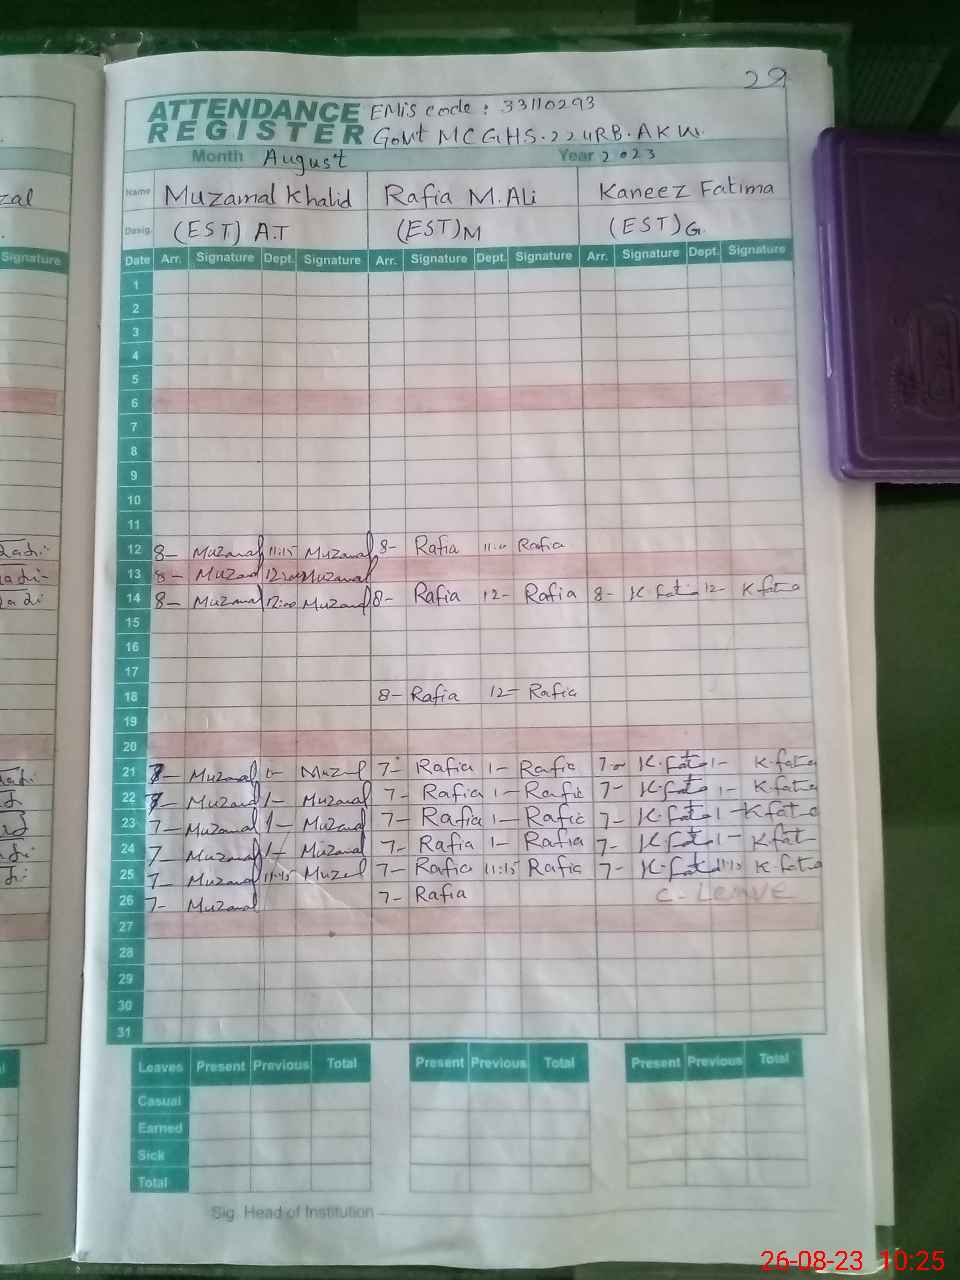 29
ATTENDANCE REGISTER
EMis code : 33110293
Govt MCGHS. 224RB. AKW.
Month August Year 2023
Name Muzamal Khalid Rafia M. Ali Kaneez Fatima
Desig. (EST) A.T (EST) M (EST) G.
Signature Date Arr. Signature Dept. Signature Arr. Signature Dept. Signature Arr. Signature Dept. Signature
1
2
3
4
5
6
7
8
9
10
11
12 8- Muzamal 11:15 Muzamal 8- Rafia Rafia
13 8- Muzamal Muzamal
14 8- Muzamal 12:00 Muzamal 8- Rafia 12- Rafia 8- K.Fat 12- K fat
15
16
17
18 8- Rafia 12- Rafia
19
20
21 Muzamal 1- Muzal 7- Rafia 1- Rafia K.Fat 1- K.fat
22 Muzamal 1- Muzamal 7- Rafia 1- Rafia 7- K.Fat 1- K.fat
23 7- Muzamal 1- Muzamal 7- Rafia 1- Rafia 7- K.Fat 1- K fat
24 7- Muzamal 1- Muzamal 7- Rafia 1- Rafia 7- K.Fat 1- K.fat
25 7- Muzamal Muzal 7- Rafia 11:15 Rafia 7- K.Fat 11:15 K.fat
26 7- Muzamal 7- Rafia C-Leave
27
28
29
30
31
Leaves Present Previous Total Present Previous Total Present Previous Total
Casual
Earned
Sick
Total
Sig. Head of Institution
26-08-23 10:25